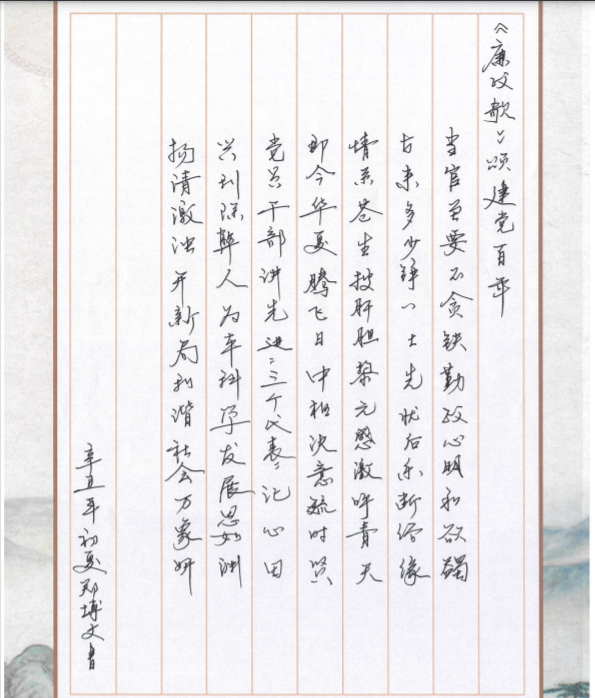 《廉政歌》颂建党百年
当官首要不贪钱勤政心明和欲蠲
古来多少铮々士先状后乐断俗缘
情系苍生披肝胆黎元感激呼青天
即今华夏腾飞日中枢决意疏时贤
党员干部讲先进“三个代表”记心田
兴利除弊人为本科学发展思如渊
扬清激浊开新局和谐社会万象妍
辛丑年初夏邓博文书